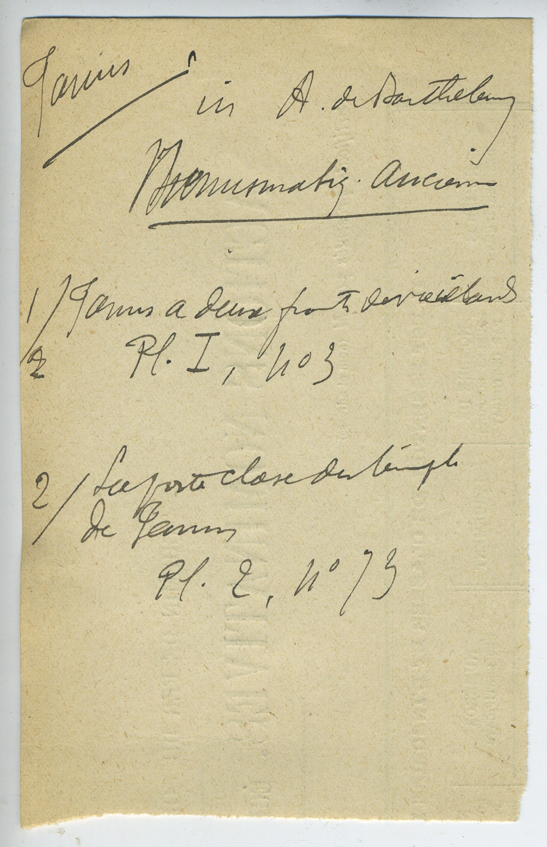 Janus
in A. de Barthelemy
Numismatiq. ancienne
1/ Janus a deux fronts de vieillards
2 Pl. I, no 3
2/ La porte close du temple
de Janus
Pl. 2, no 73